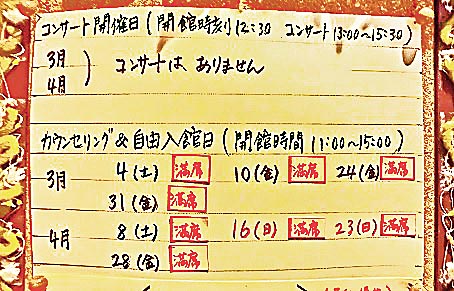 コンサート開催日(開館時刻12:30 コンサート13:00〜15:30)
3月
4月 ) コンサートは ありません
カウンセリング&自由入館日(開館時間11:00〜15:00)
3月 4(土) 満席 10(金) 満席 24(金) 満席
31(金) 満席
4月 8(土) 満席 16(日) 満席 23(日) 満席
28(金) 満席